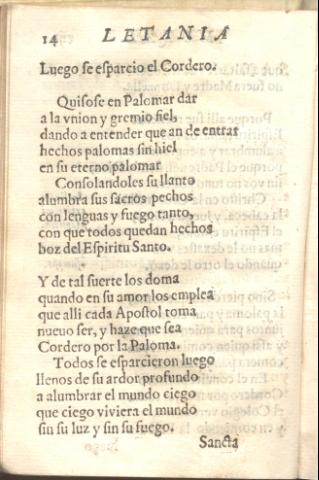 14 LETANIA
Luego se esparcio el Cordero.
Quisose en Palomar dar
a la vnion y gremio fiel,
dando a entender que an de entrar
hechos palomas sin hiel
en su eterno palomar
Consolandoles su llanto
alumbra sus sacros pechos
con lenguas y fuego tanto,
con que todos quedan hechos
boz del Espiritu Santo.
Y de tal suerte los doma
quando en su amor los emplea
que alli cada Apostol toma
nueuo ser, y haze que sea
Cordero por la Paloma.
Todos se esparcieron luego
llenos de su ardor profundo
a alumbrar el mundo ciego
que ciego viviera el mundo
sin su luz y sin su fuego.
Sancta